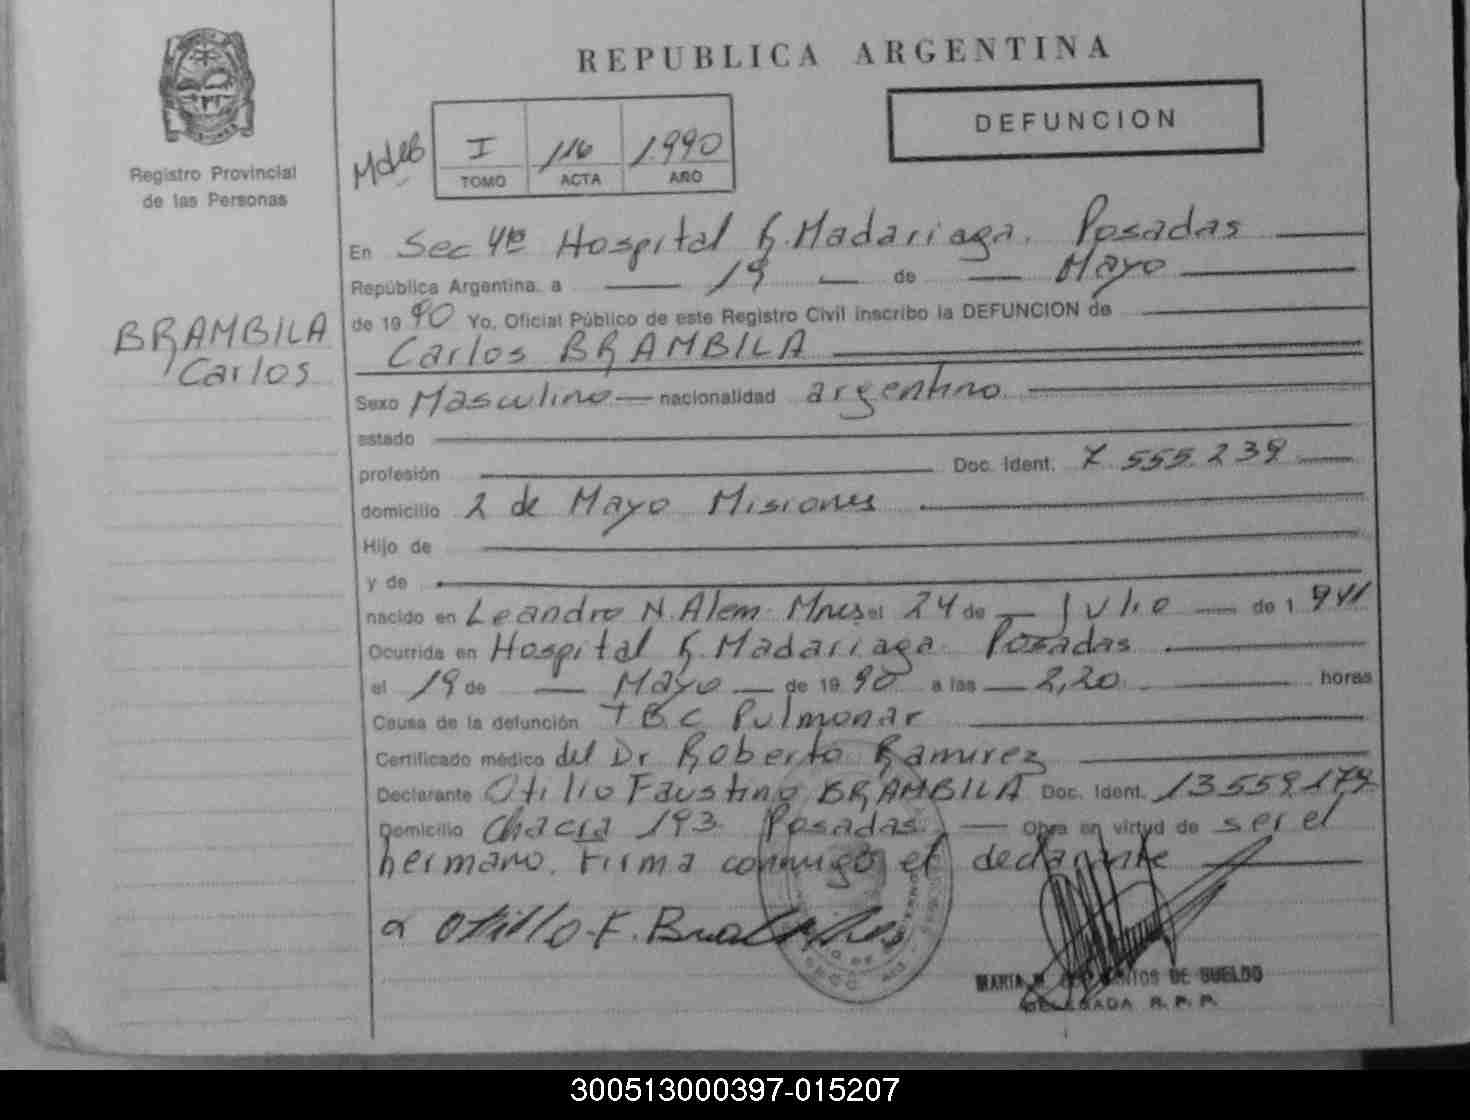 REPUBLICA ARGENTINA
DEFUNCION
Registro Provincial
de las Personas
I 116 1.990
TOMO ACTA AÑO
En Sec 4ta Hospital R. Madariaga. Posadas
República Argentina. a 19 de Mayo
de 1990 Yo, Oficial Público de este Registro Civil inscribo la DEFUNCION de
BRAMBILA
Carlos
Carlos BRAMBILA
Sexo Masculino nacionalidad argentino
estado
profesión Doc. Ident. 7.555.239
domicilio 2 de Mayo Misiones
Hijo de
y de
nacido en Leandro N. Alem Mnes el 24 de Julio de 1.941
Ocurrida en Hospital R. Madariaga Posadas
el 19 de Mayo de 1990 a las 2,20 horas
Causa de la defunción TBC Pulmonar
Certificado médico del Dr Roberto Ramirez
Declarante Otilio Faustino BRAMBILA Doc. Ident. 13.559.179
Domicilio Chacra 193 Posadas. Obra en virtud de ser el
hermano. Firma conmigo el declarante
Otilio F. Brambila
MARIA DE SUELDO
DELEGADA R. P. P.
300513000397-015207